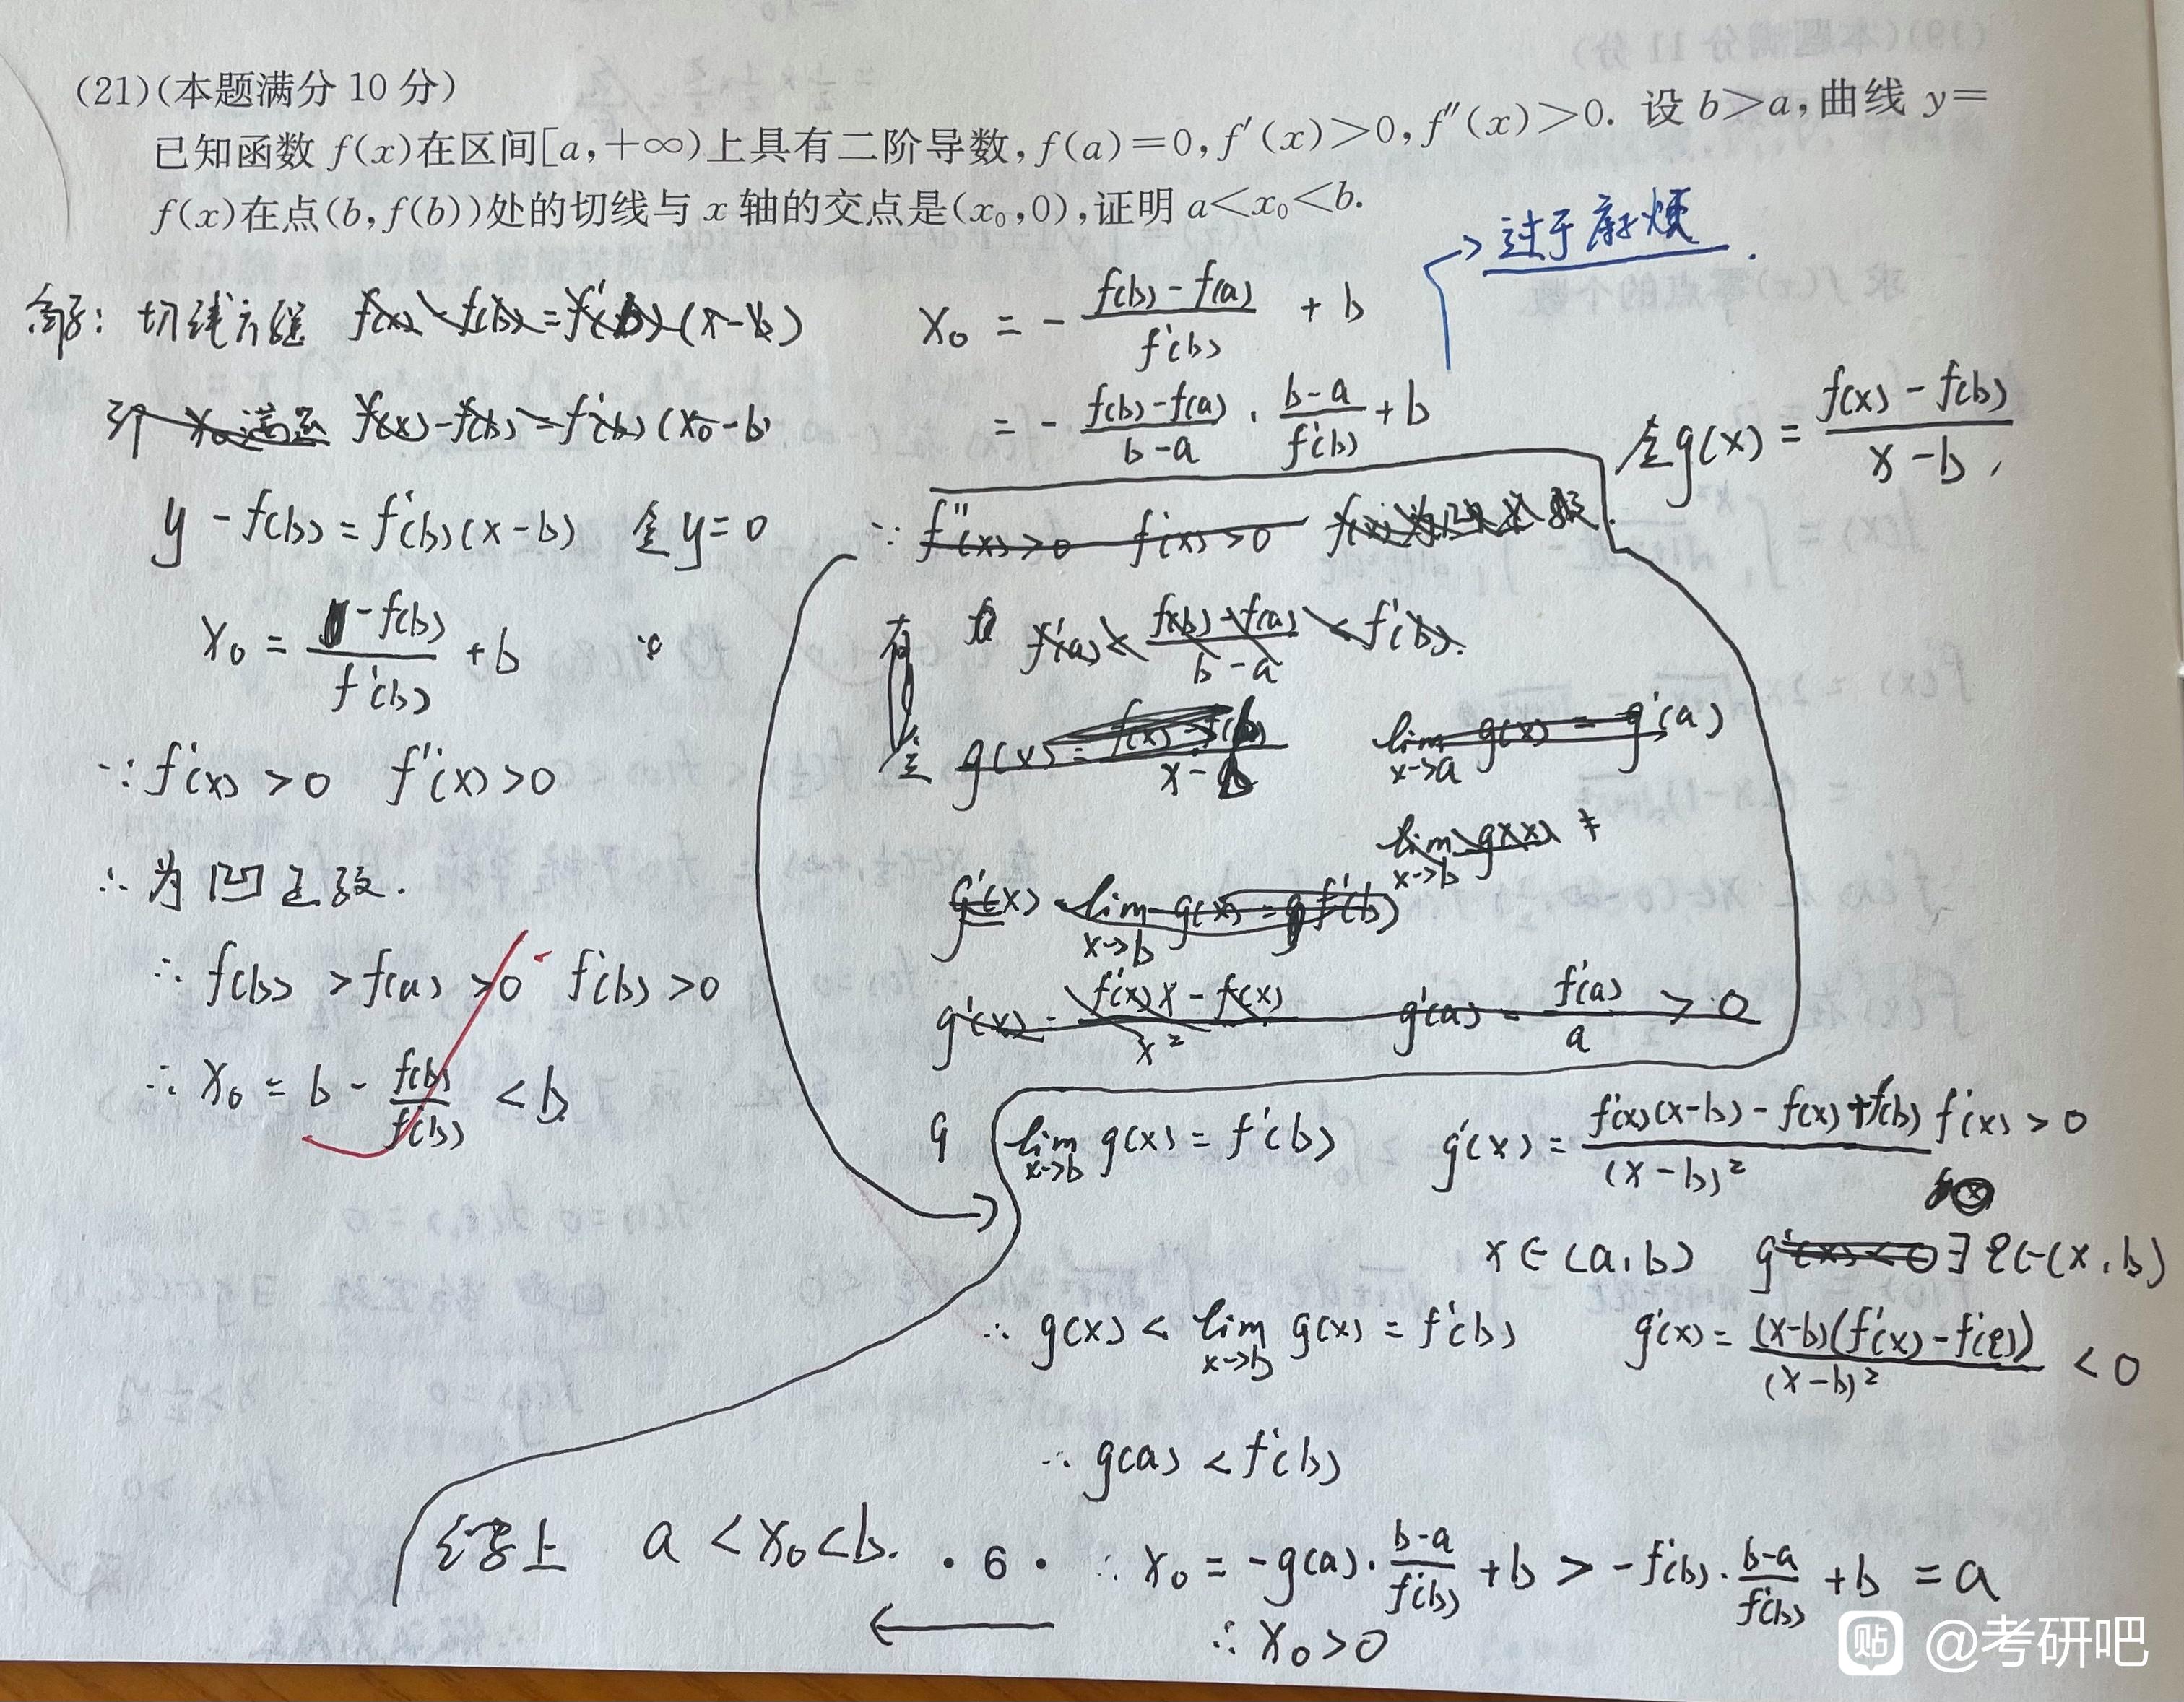 (21)(本题满分 10 分)
已知函数 f(x)在区间[a,+∞)上具有二阶导数,f(a)=0,f′(x)>0,f″(x)>0. 设 b>a,曲线 y=
f(x)在点(b,f(b))处的切线与 x 轴的交点是(x₀,0),证明 a<x₀<b.
过于麻烦.
解: 切线方程 f(x)-f(b)=f'(b)(x-b)
f(x)-f(b)=f'(b)(x₀-b)
y-f(b)=f'(b)(x-b) 令y=0
x₀=(-f(b))/(f'(b))+b
∵f'(x)>0 f''(x)>0
∴为凹函数.
∴f(b)>f(a)>0 f'(b)>0
∴x₀=b-f(b)/f'(b)<b
x₀=-(f(b)-f(a))/f'(b)+b
=-(f(b)-f(a))/(b-a)·(b-a)/f'(b)+b
令g(x)=(f(x)-f(b))/(x-b),
∵f''(x)>0 f'(x)>0
有 f'(a)<(f(b)-f(a))/(b-a)<f'(b).
令 g(x)=(f(x)-f(b))/(x-b) lim x→a g(x)=g'(a)
lim x→b g(x)
g'(x) lim x→b g(x)=f'(b)
g'(x)=(f'(x)x-f(x))/x² g'(a)=f'(a)/a>0
lim x→b g(x)=f'(b) g'(x)=(f'(x)(x-b)-f(x)+f(b))/(x-b)² f'(x)>0
x∈(a,b) g'(x)<0 ∃ξ∈(x,b)
∴g(x)<lim x→b g(x)=f'(b) g'(x)=(x-b)(f'(x)-f'(ξ))/(x-b)²<0
∴g(a)<f'(b)
∴x₀=-g(a)·(b-a)/f'(b)+b>-f'(b)·(b-a)/f'(b)+b=a
∴x₀>0
综上 a<x₀<b.
·6·
贴 @考研吧